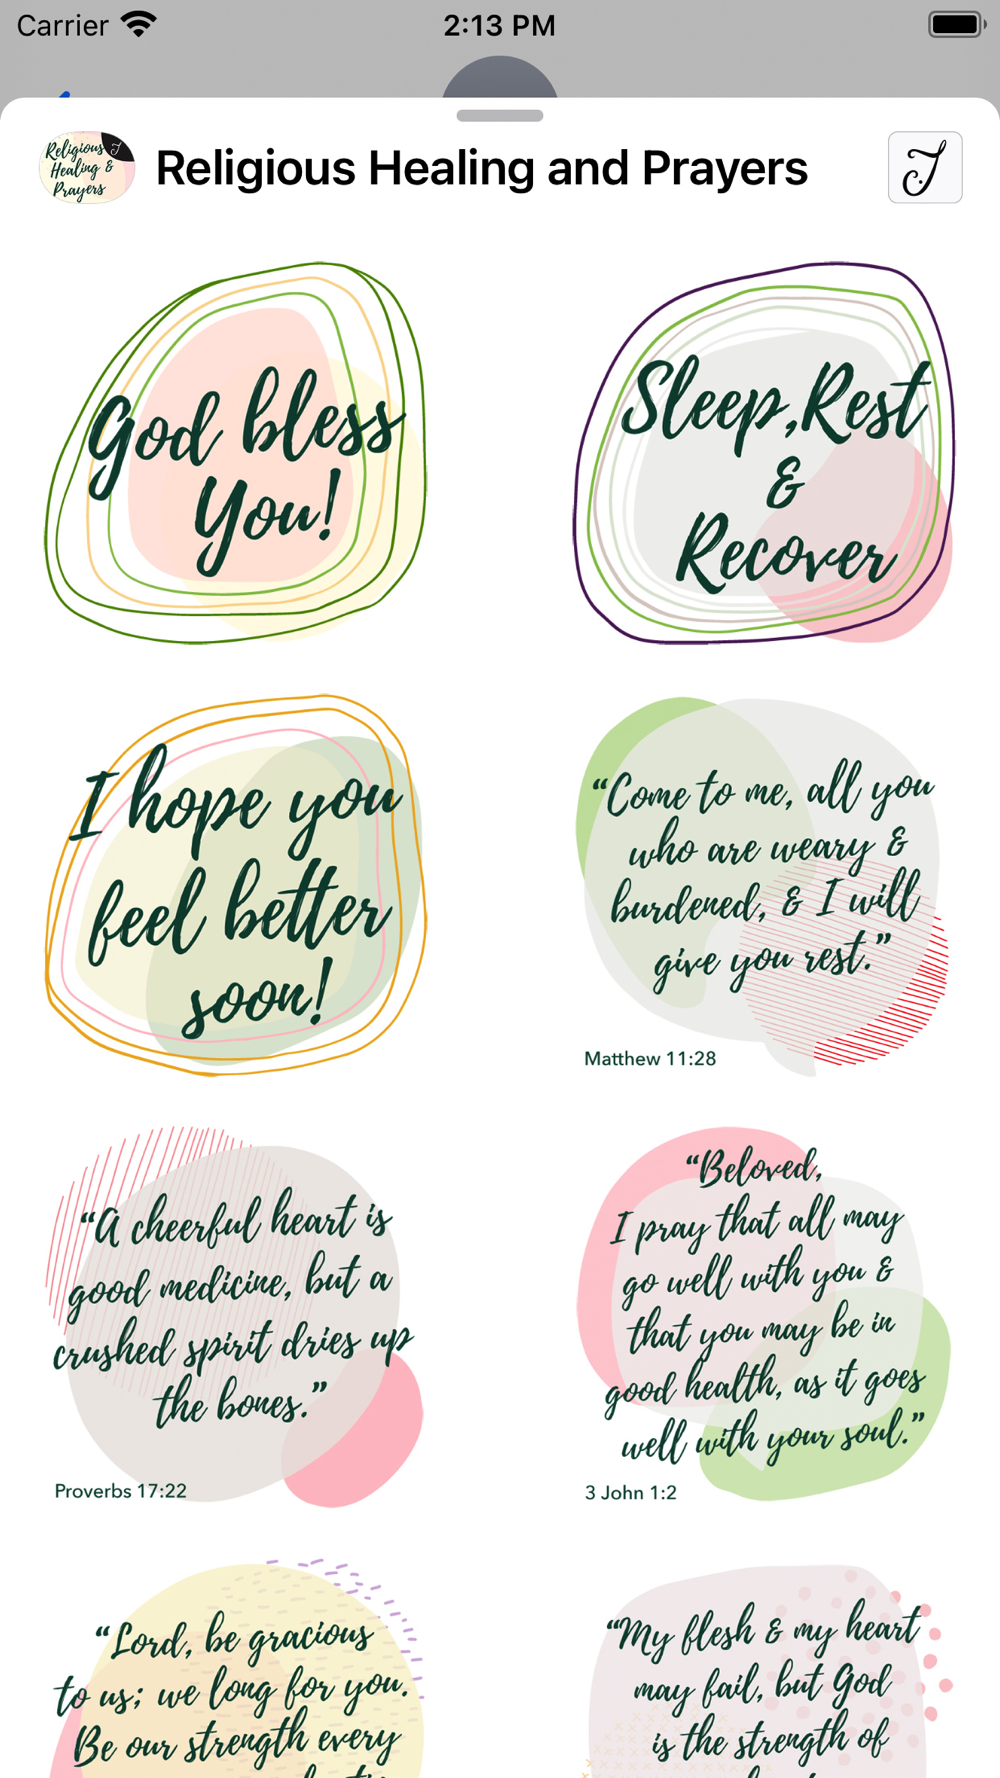 Carrier
2:13 PM
Religious
Healing &
Prayers
Religious Healing and Prayers
God bless
You!
Sleep, Rest
&
Recover
I hope you
feel better
soon!
“Come to me, all you
who are weary &
burdened, & I will
give you rest.”
Matthew 11:28
“A cheerful heart is
good medicine, but a
crushed spirit dries up
the bones.”
Proverbs 17:22
“Beloved,
I pray that all may
go well with you &
that you may be in
good health, as it goes
well with your soul.”
3 John 1:2
“Lord, be gracious
to us; we long for you.
Be our strength every
“My flesh & my heart
may fail, but God
is the strength of